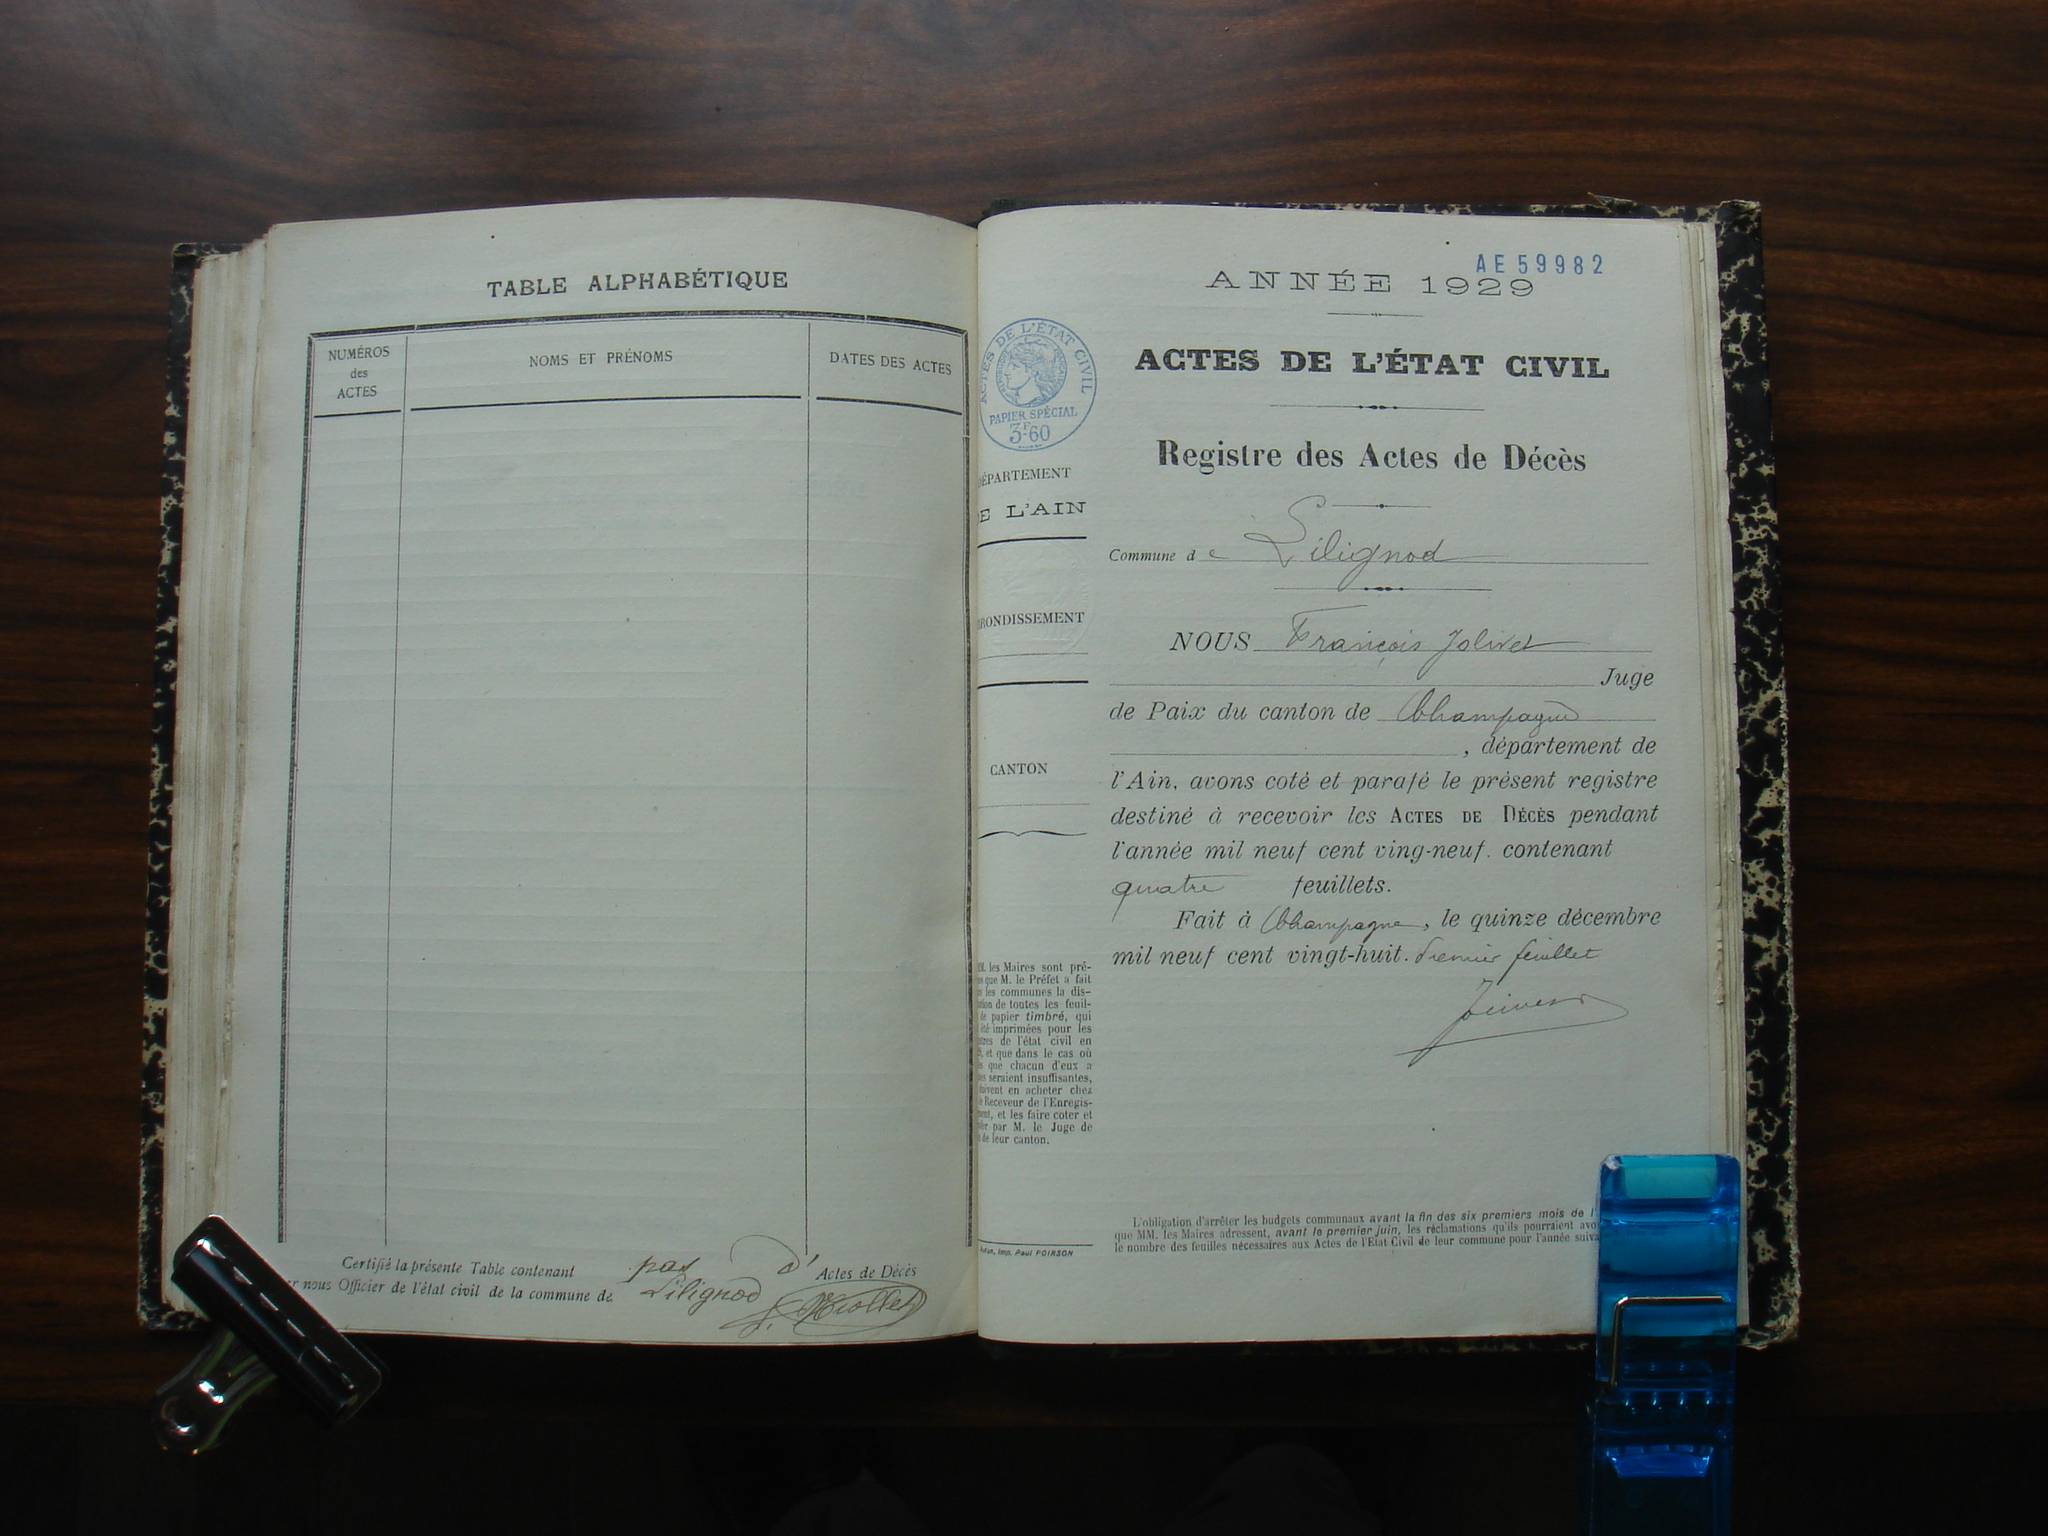 TABLE ALPHABÉTIQUE
NUMÉROS
des
ACTES
NOMS ET PRÉNOMS
DATES DES ACTES
Certifié la présente Table contenant pas d' Actes de Décès
nous Officier de l'état civil de la commune de Lilignod
AE 59982
ANNÉE 1929
ACTES DE L'ÉTAT CIVIL
Registre des Actes de Décès
Commune de Lilignod
NOUS François Jolivet
Juge
de Paix du canton de Champagne
, département de
l'Ain, avons coté et parafé le présent registre
destiné à recevoir les ACTES DE DÉCÈS pendant
l'année mil neuf cent ving-neuf. contenant
quatre feuillets.
Fait à Champagne, le quinze décembre
mil neuf cent vingt-huit. Premier feuillet
L'obligation d'arrêter les budgets communaux avant la fin des six premiers mois de l'
que MM. les Maires adressent, avant le premier juin, les réclamations qu'ils pourraient avo
le nombre des feuilles nécessaires aux Actes de l'Etat Civil de leur commune pour l'année suiva
ACTES DE L'ÉTAT CIVIL
PAPIER SPÉCIAL
3F60
ÉPARTEMENT
E L'AIN
RONDISSEMENT
CANTON
M. les Maires sont pré-
que M. le Préfet a fait
les communes la dis-
tion de toutes les feuil-
de papier timbré, qui
été imprimées pour les
tres de l'état civil en
, et que dans le cas où
que chacun d'eux a
seraient insuffisantes,
doivent en acheter chez
le Receveur de l'Enregis-
ment, et les faire coter et
par M. le Juge de
de leur canton.
Imp. Paul POIRSON